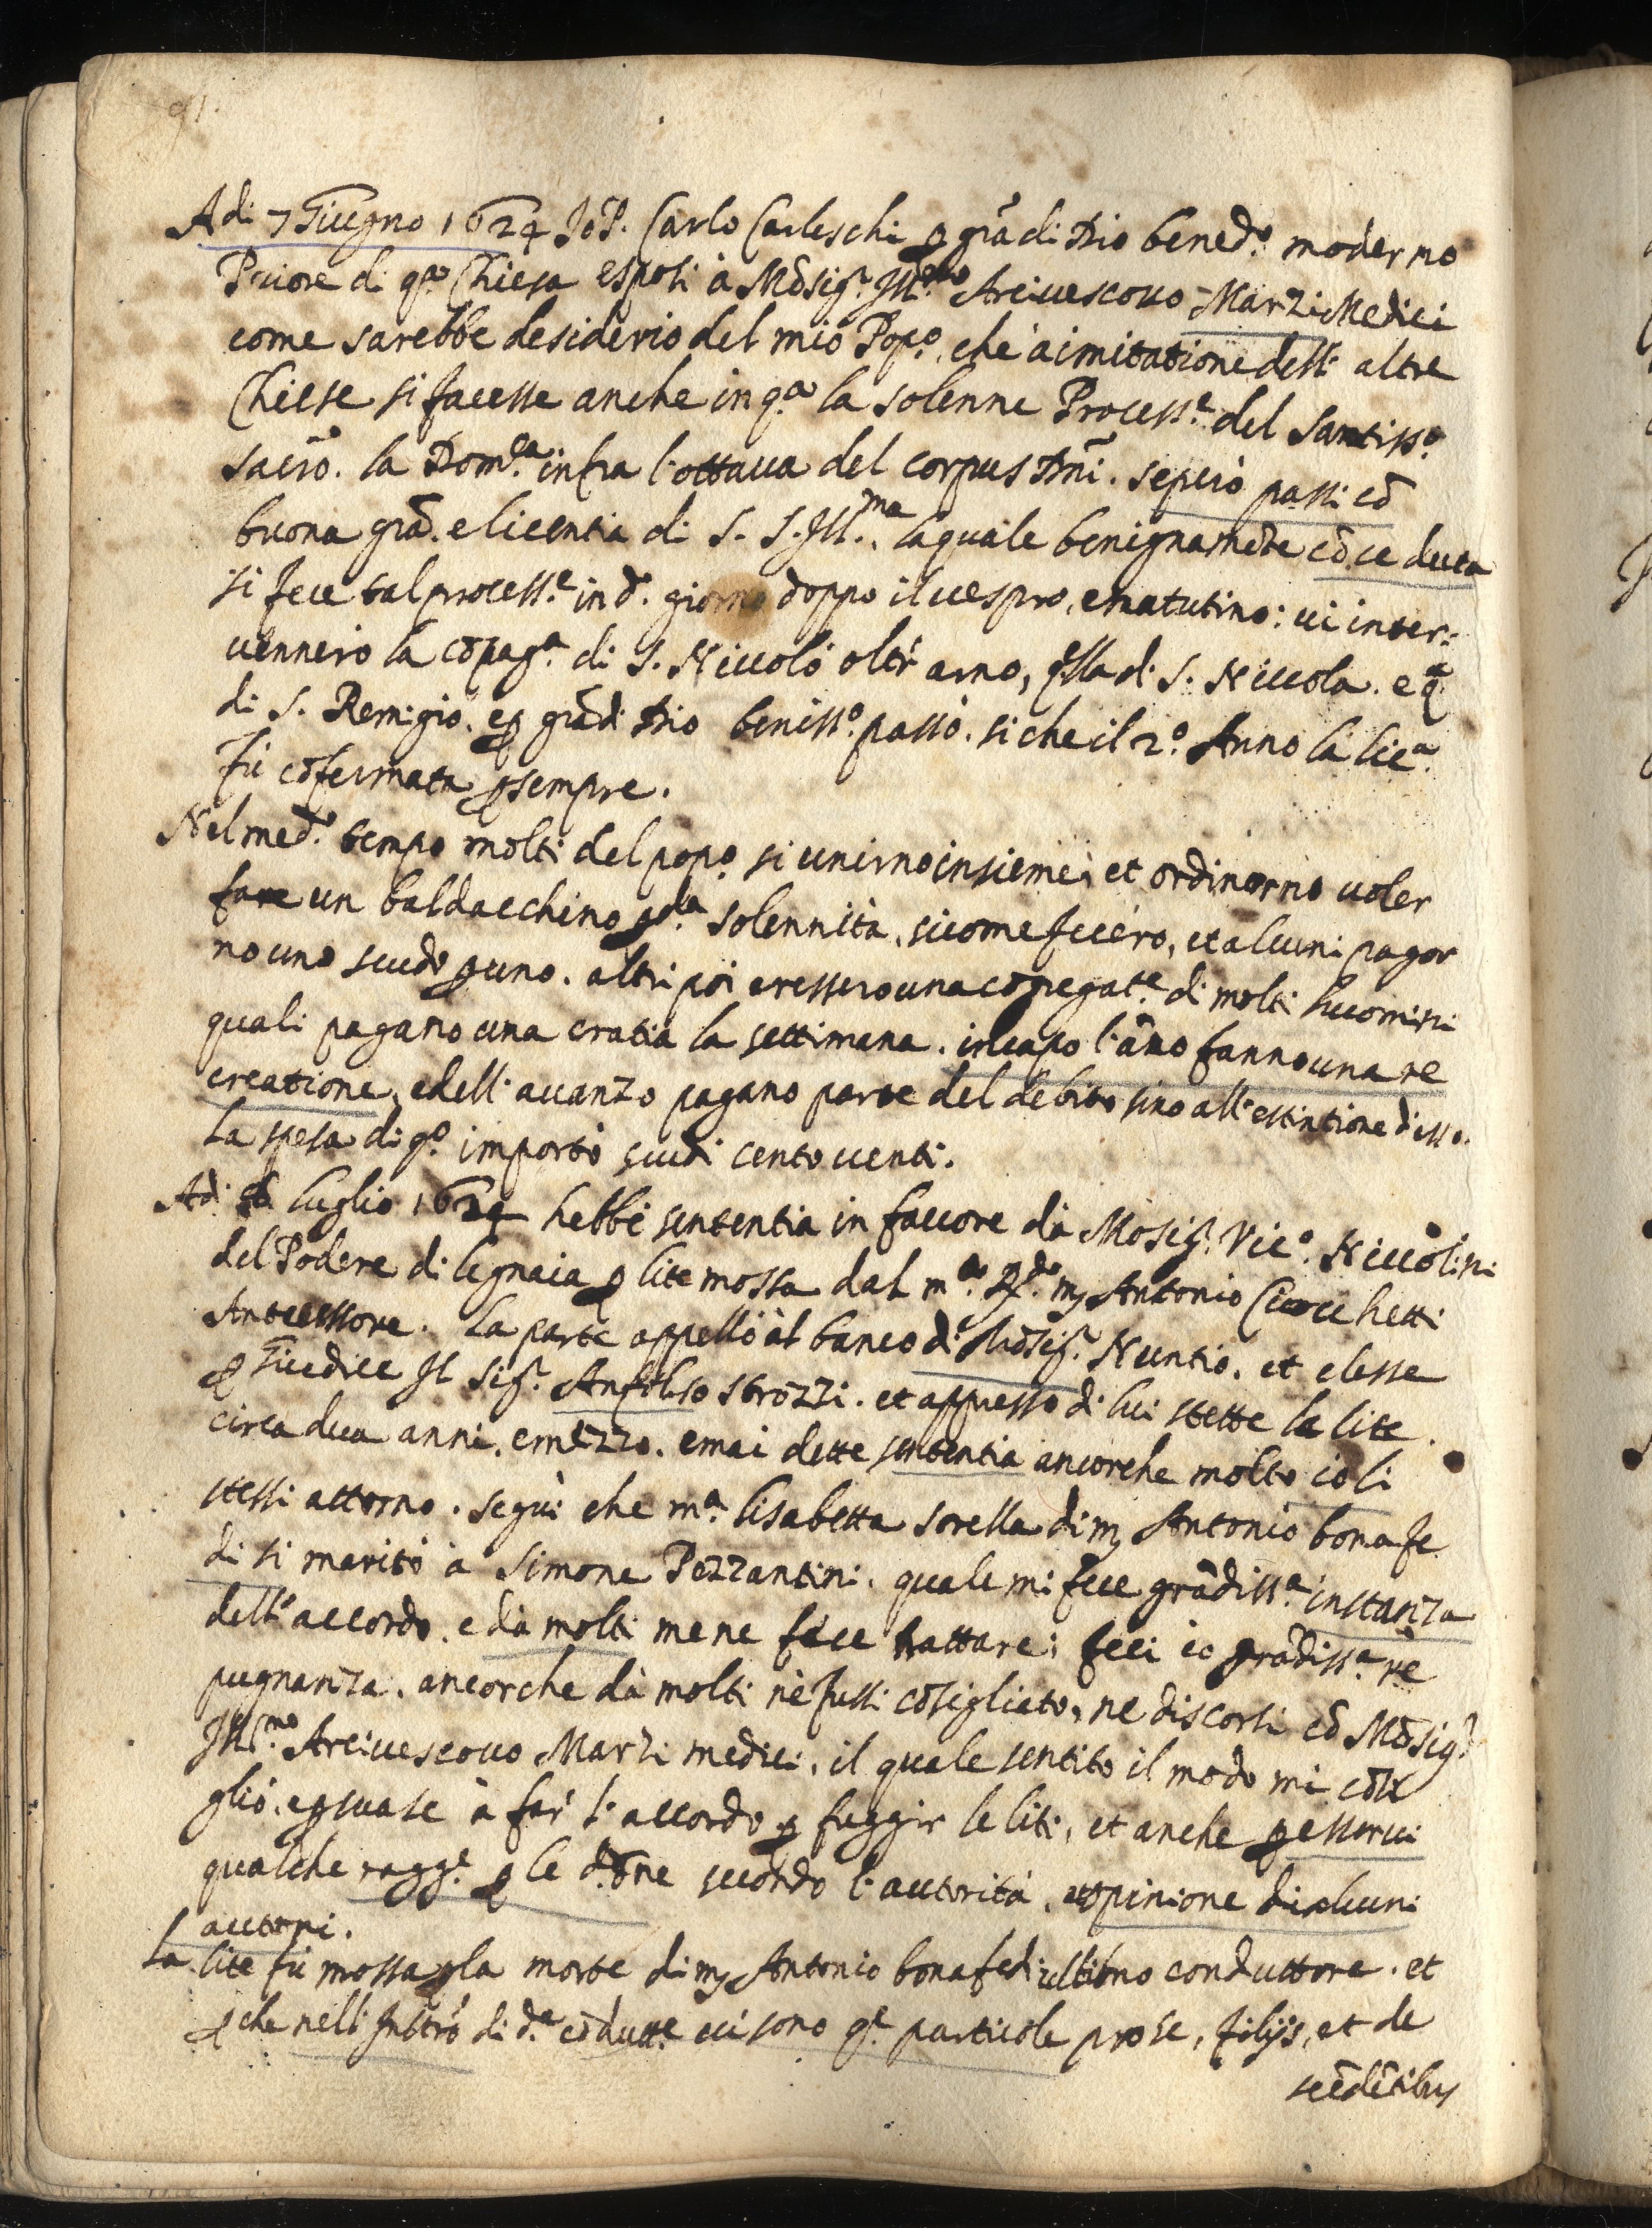 91.
Adi 7 Giugno 1624 Io P. Carlo Carleschi ꝑ grã di Dio bened.º moderno
Priore di q.ª Chiesa esposi à Mõsig.r Ill.mo Arciuescouo Marzi Medici
come sarebbe desiderio del mio Pop.º, che à imitatione dell' altre
Chiese si facesse anche in q.ª la solenne Process.e del Santiss.º
sacrõ. la Dom.ca infra l'ottaua del corpus Dñi. seperò passi cõ
buona grã. e licentia di S. S. Ill.ma, laquale benignamẽte cõceduta
si fece tal process.e in d.º giorno doppo il uespro, e matutino: ui inter:
uennero la cõpag.ª di S. Niccolò oltr' arno, q.lla di S. Niccola. e q.ª
di S. Remigio. e ꝑ grã di Dio beniss.º passò. si che il 2.º Anno la lic.ª
fù cõfermata ꝑ sempre.
Nel med.º tempo molti del pop.º si unirno insieme, et ordinorno uoler
fare un baldacchino ꝑ d.ta solennità, sicome fecero, et alcuni pagor
no uno scudo ꝑ uno. altri poi eressero una cõgregat.e di molti huomini
quali pagano una cratia la settimana. in capo l'ãno fanno una re
creatione, e dell' auanzo pagano parte del debito sino all' estintione d'esso.
La spesa di q.º importò scudi cento uenti.
Adi luglio 1624 hebbi sententia in fauore da Mõsig.r Vic.º Niccolini
del Podere di legnaia ꝑ lite mossa dal m.to R.do mꝫ Antonio Ciocchetti
Antecessore. La parte appellò al banco di Mõsig.r Nuntio, et elesse
ꝑ Giudice Il Sig.r Anfrilso strozzi. et appresso di lui stette la lite
circa dua anni, e mezzo. e mai dette sententia ancorche molto io li
stessi attorno. seguì che m.ª lisabetta sorella di mꝫ Antonio bonafe
di si maritò à Simone Pezzantini, quale mi fece grãdiss.ª instanza
dell' accordo, e da molti me ne fece trattare; feci io grãdiss.ª re
pugnanza, ancorche da molti ne fussi cõsigliato, ne discorsi cõ Mõsig.r
Ill.mo Arciuescouo Marzi medici, il quale sentito il modo mi cõsi
gliò, e ꝑsuase à far l'accordo ꝑ fuggir le liti, et anche ꝑ esserui
qualche ragg.e ꝑ le dõne secõdo l'autorità, et opinione di alcuni
auttori.
La lite fù mossa ꝑ la morte di mꝫ Antonio bonafedi ultimo conduttore. et
ꝑche nell' Instrõ di d.ª cõdutt.e ui sono q.e particole pro se, filijs, et de
scẽdẽtibus